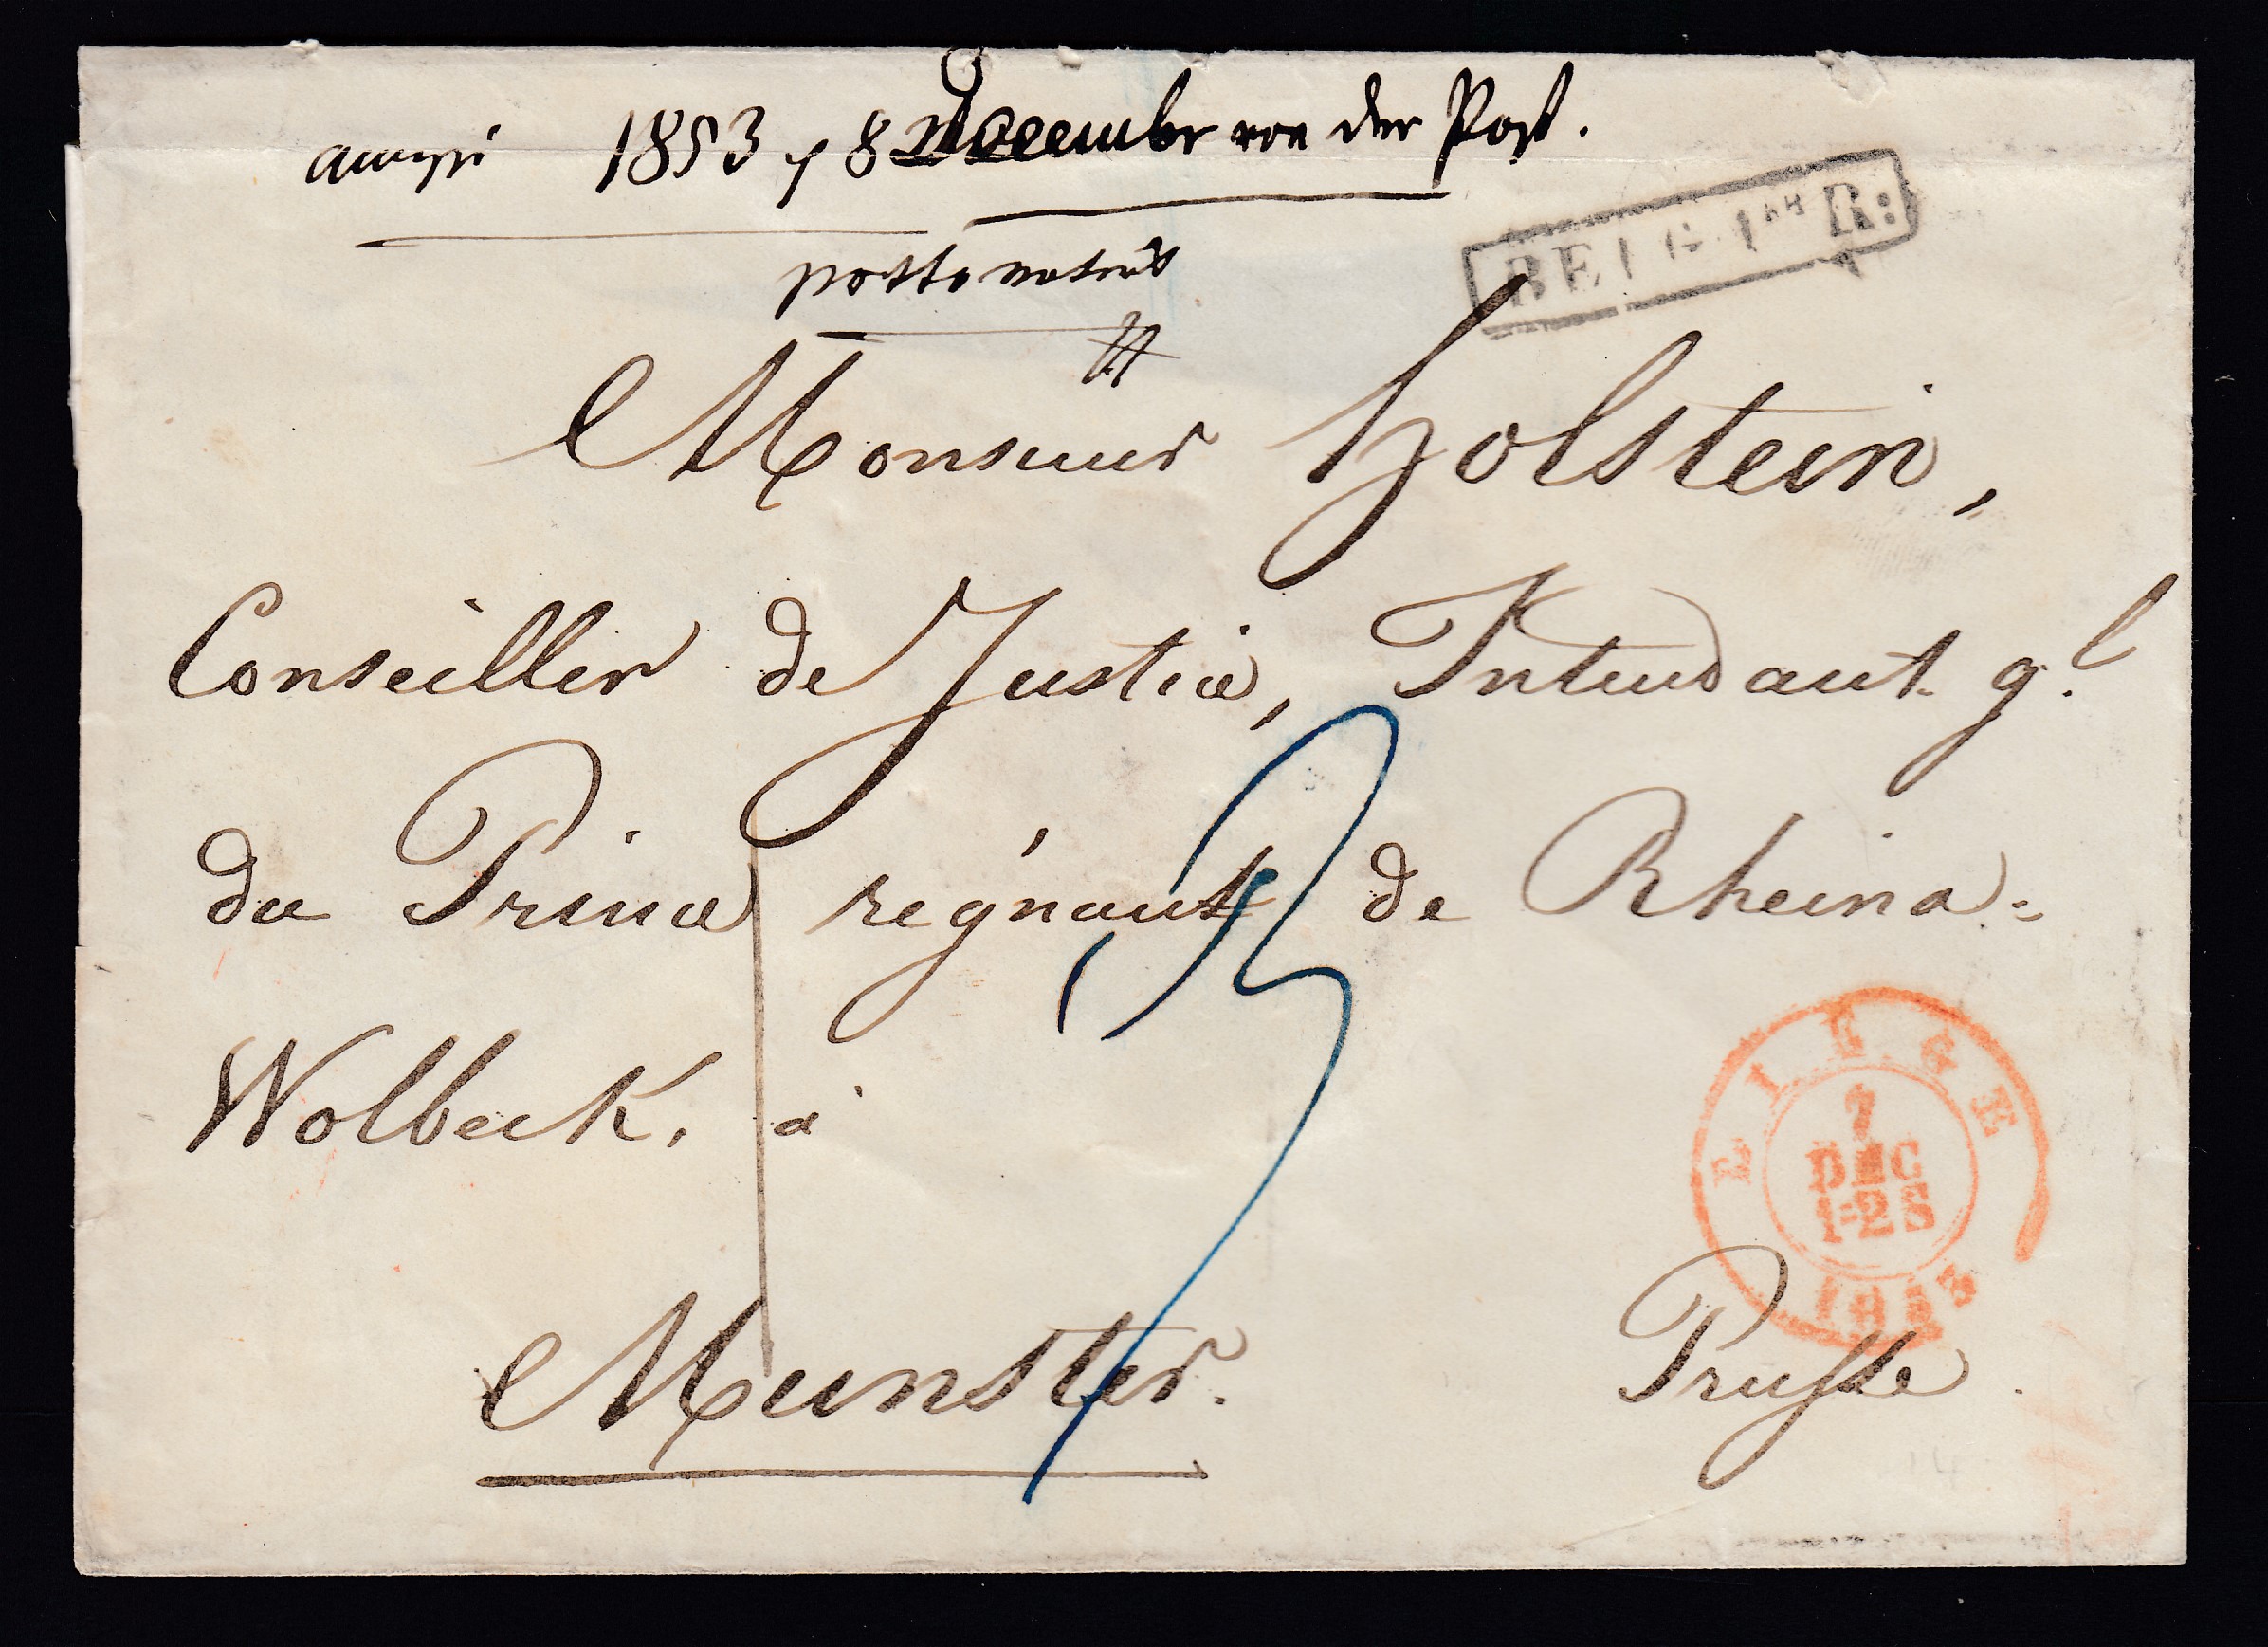 accepi 1853 8 December von der Post.
BELG. 1ER R:
porto notirt
Monsieur Holstein,
Conseiller de Justice, Intendant gl.
du Prince régnant de Rheina=
Wolbeck, à
Munster.
Prusse.
LIEGE
7
DEC
1-2 S
1853